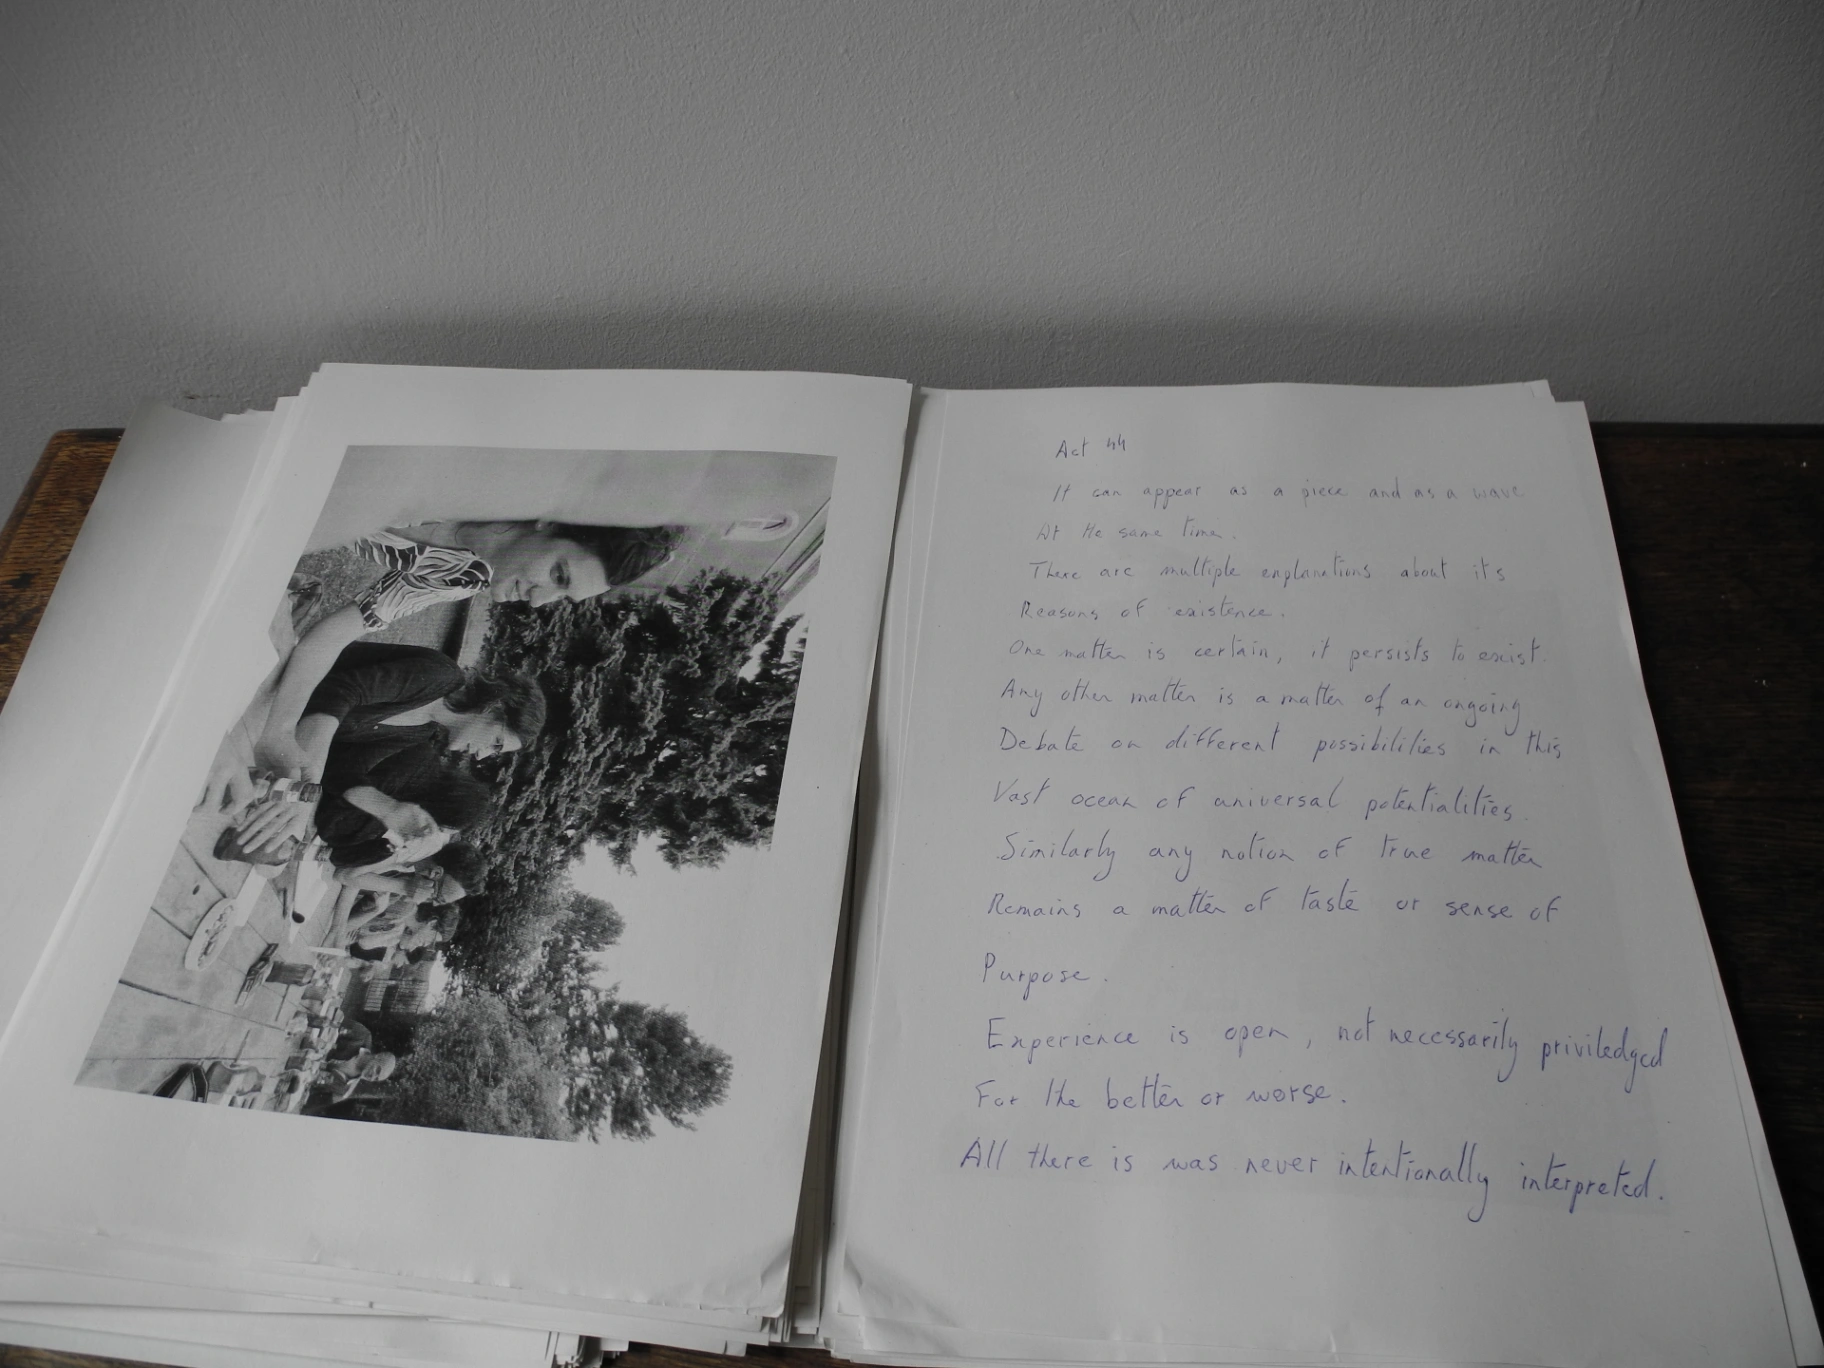 Act 44
It can appear as a piece and as a wave
At the same time.
There are multiple explanations about it's
Reasons of existence.
One matter is certain, it persists to exist.
Any other matter is a matter of an ongoing
Debate on different possibilities in this
Vast ocean of universal potentialities.
Similarly any notion of true matter
Remains a matter of taste or sense of
Purpose.
Experience is open, not necessarily priviledged
For the better or worse.
All there is was never intentionally interpreted.